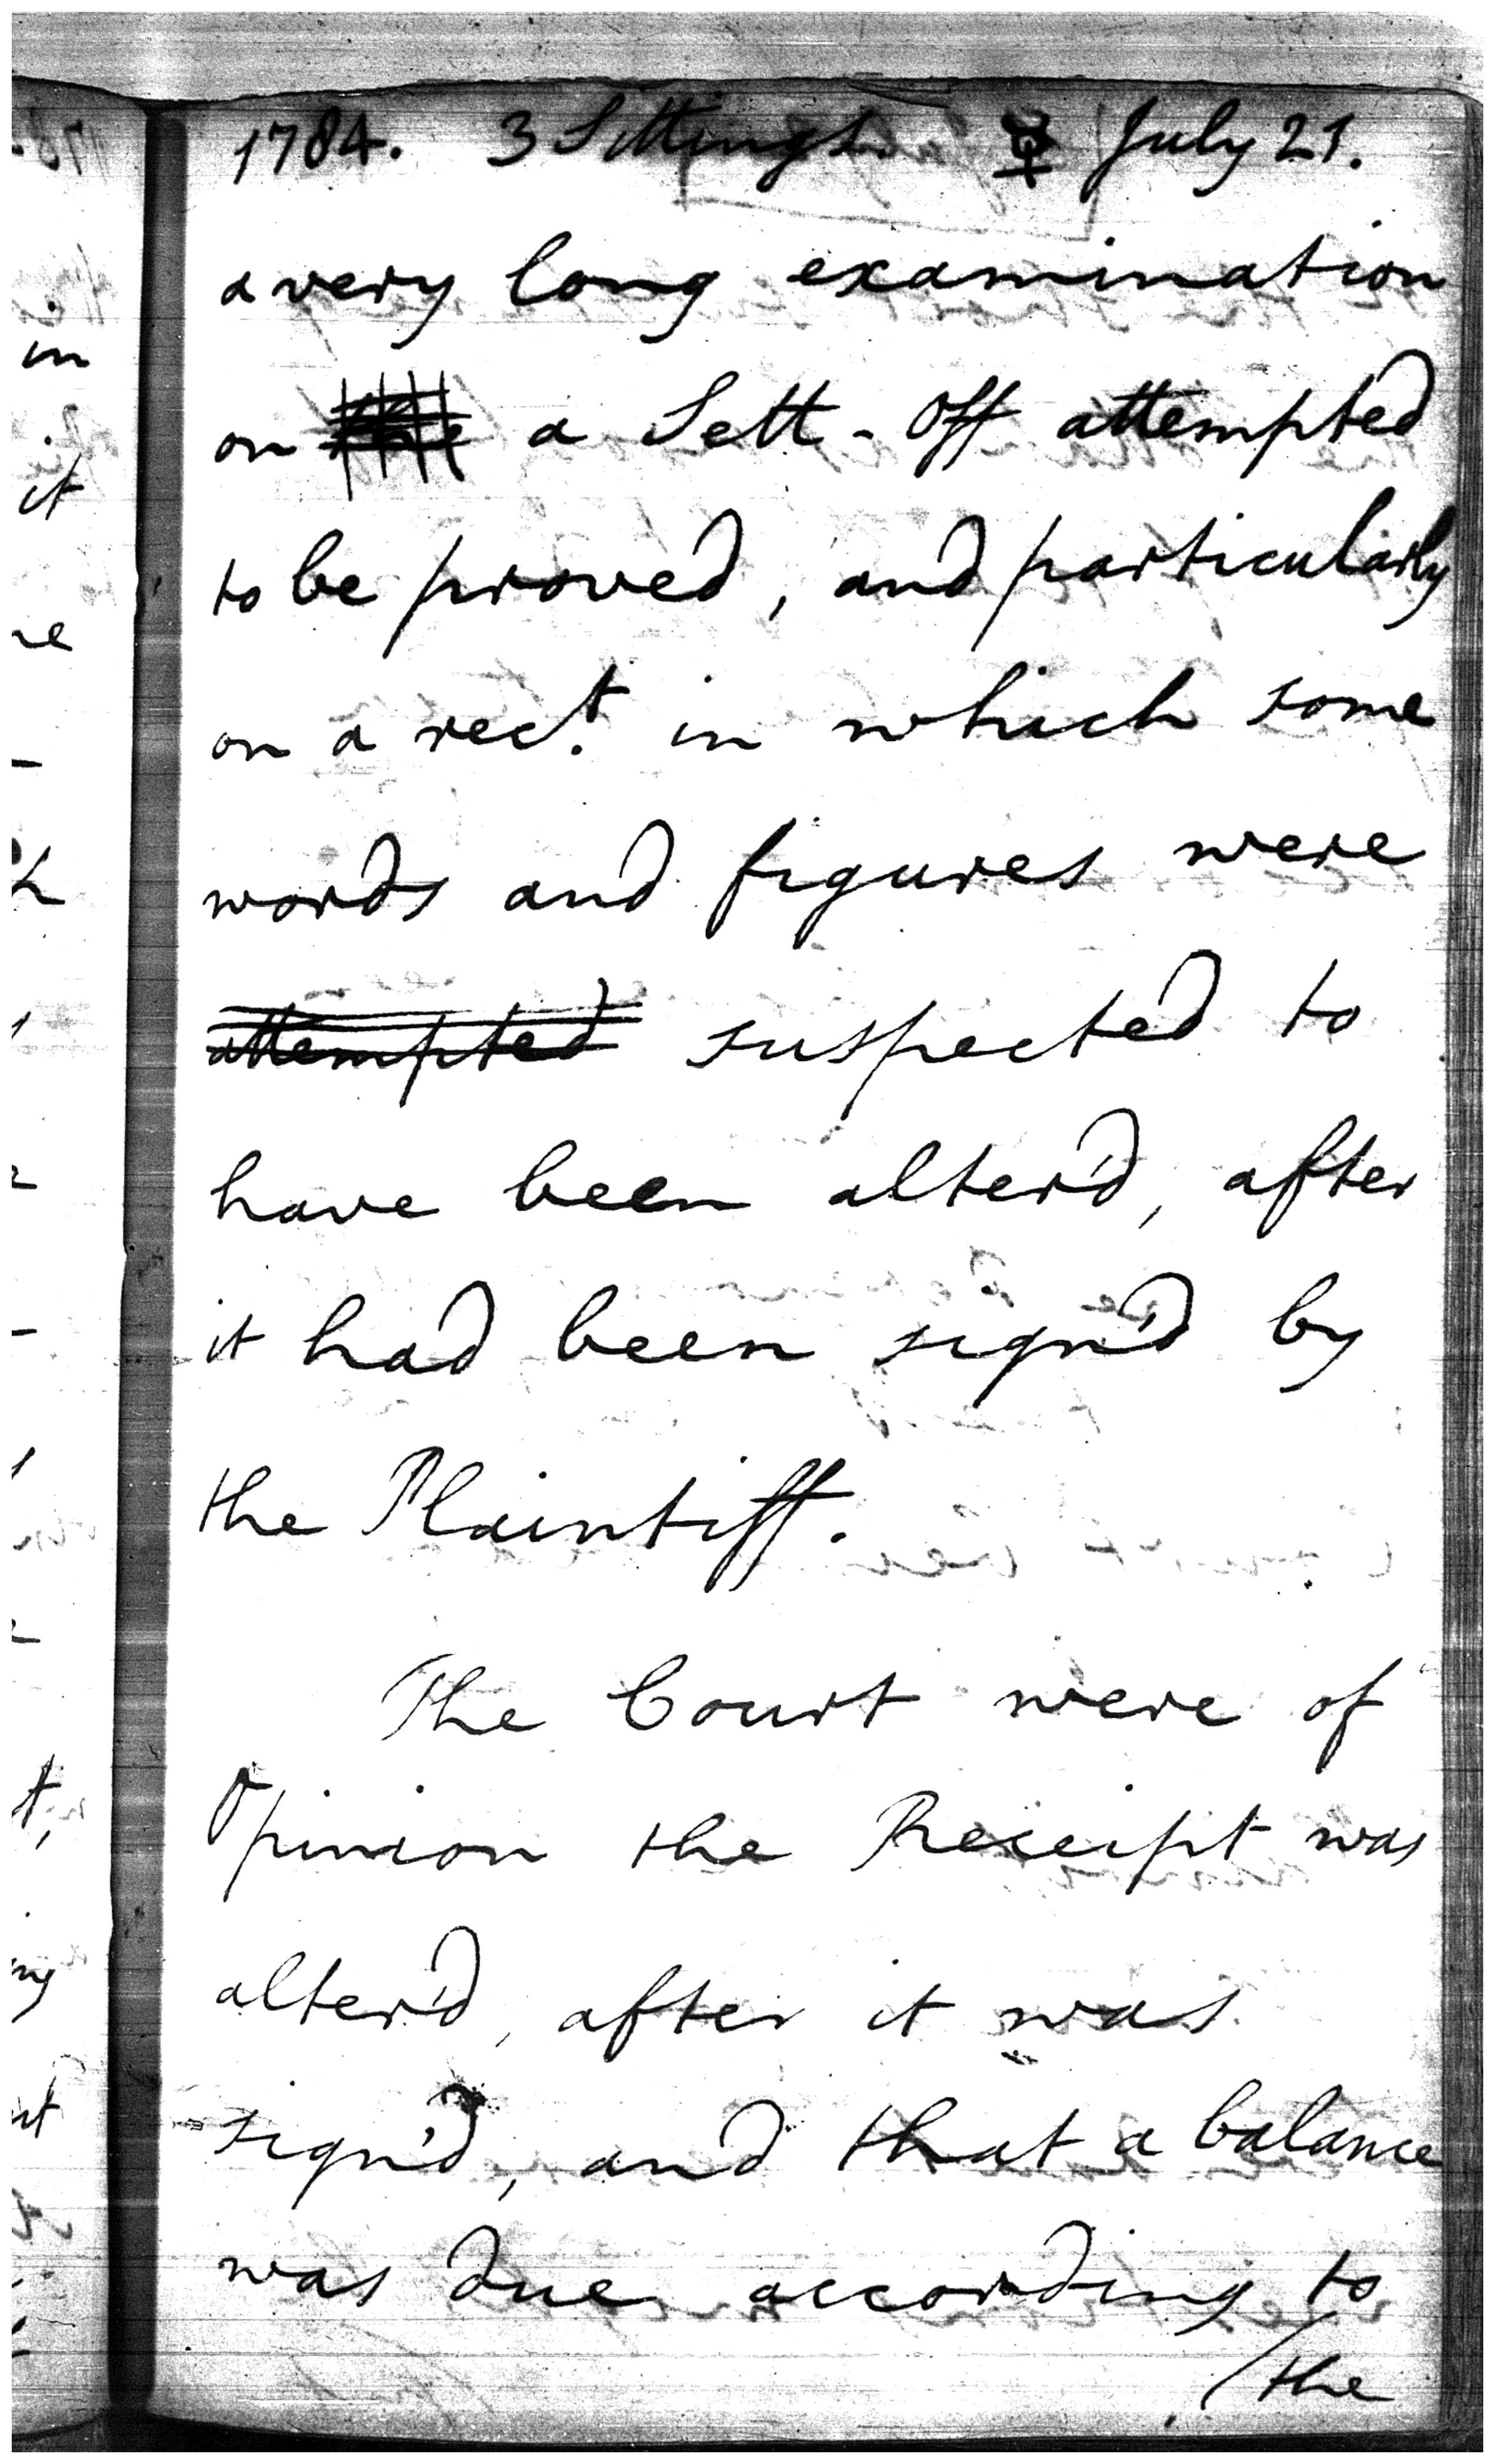 1784. 3 Sittings. ☿ July 21.
a very long examination
on a Sett-Off attempted
to be proved, and particularly
on a rect. in which some
words and figures were
attempted suspected to
have been alter'd, after
it had been sign'd by
the Plaintiff.
The Court were of
Opinion the Receipt was
alter'd, after it was
sign'd, and that a balance
was due according to
/the
in
it